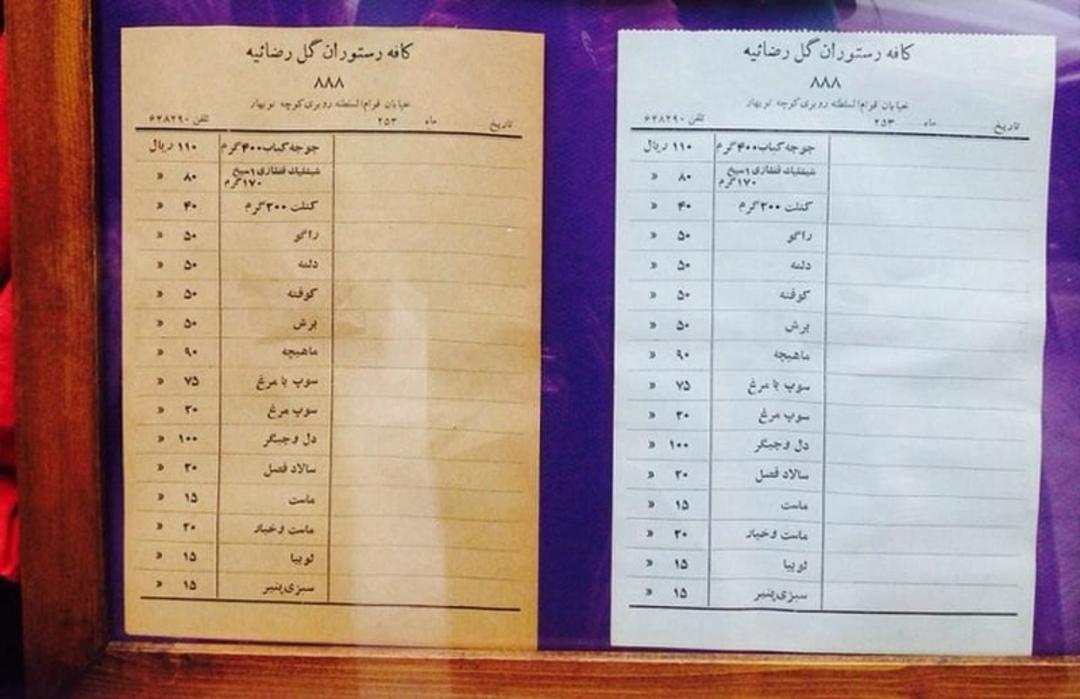 کافه رستوران گل رضائیه
۸۸۸
خیابان قوام السلطنه روبری کوچه نوبهار
تاریخ ماه ۲۵۳ تلفن ۶۲۸۲۹۰
جوجه کباب ۴۰۰ گرم ۱۱۰ ریال
شیشلیک قفقازی ۱ سیخ ۱۷۰ گرم ۸۰ »
کتلت ۲۰۰ گرم ۴۰ »
راگو ۵۰ »
دلمه ۵۰ »
کوفته ۵۰ »
برش ۵۰ »
ماهیچه ۹۰ »
سوپ با مرغ ۷۵ »
سوپ مرغ ۳۰ »
دل و جیگر ۱۰۰ »
سالاد فصل ۲۰ »
ماست ۱۵ »
ماست و خیار ۲۰ »
لوبیا ۱۵ »
سبزی پنیر ۱۵ »
کافه رستوران گل رضائیه
۸۸۸
خیابان قوام السلطنه روبری کوچه نوبهار
تاریخ ماه ۲۵۳ تلفن ۶۲۸۲۹۰
جوجه کباب ۴۰۰ گرم ۱۱۰ ریال
شیشلیک قفقازی ۱ سیخ ۱۷۰ گرم ۸۰ »
کتلت ۲۰۰ گرم ۴۰ »
راگو ۵۰ »
دلمه ۵۰ »
کوفته ۵۰ »
برش ۵۰ »
ماهیچه ۹۰ »
سوپ با مرغ ۷۵ »
سوپ مرغ ۳۰ »
دل و جیگر ۱۰۰ »
سالاد فصل ۲۰ »
ماست ۱۵ »
ماست و خیار ۲۰ »
لوبیا ۱۵ »
سبزی پنیر ۱۵ »